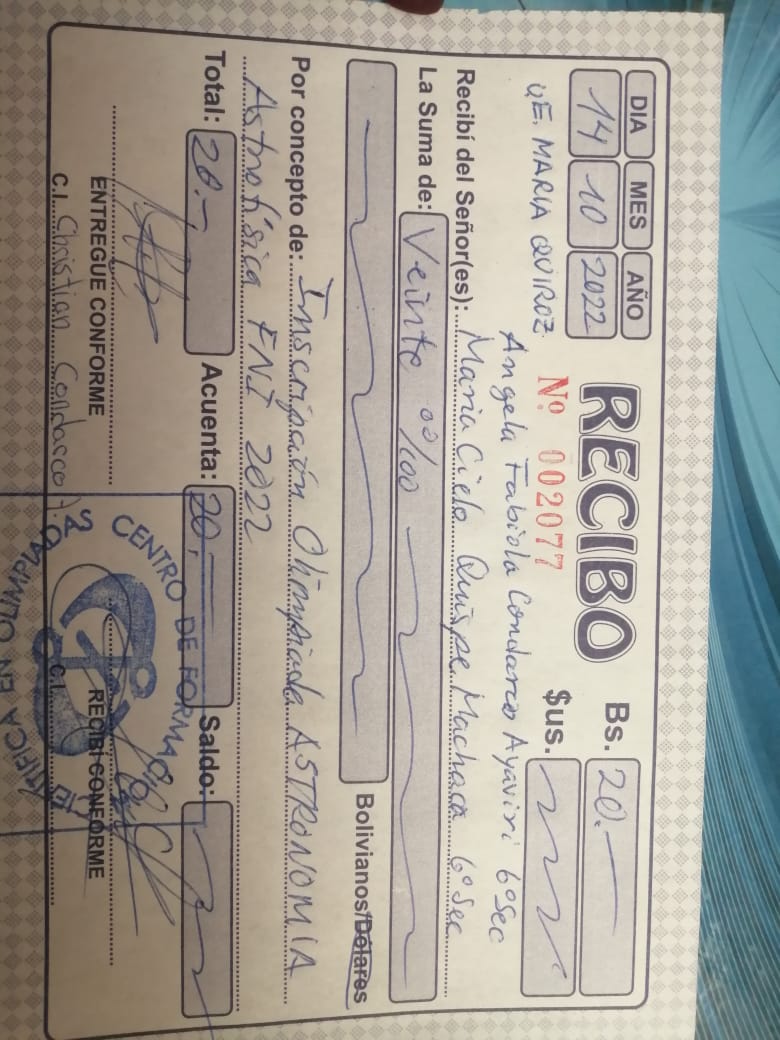 DIA MES AÑO
14 10 2022
RECIBO
Bs. 20.-
Nº 002077
$us.
UE. MARIA QUIROZ
Angela Fabiola Condarco Ayaviri 6º Sec
Recibí del Señor(es): Maria Cielo Quispe Machaca 6º Sec
La Suma de: Veinte 00/100
Bolivianos/Dólares
Por concepto de: Inscripción Olimpiada ASTRONOMIA
Astrofísica FNI 2022
Total: 20.- Acuenta: 20.- Saldo:
ENTREGUE CONFORME
RECIBI CONFORME
C.I. Christian Condarco
C.I.
CENTRO DE FORMACION
EN OLIMPIADAS